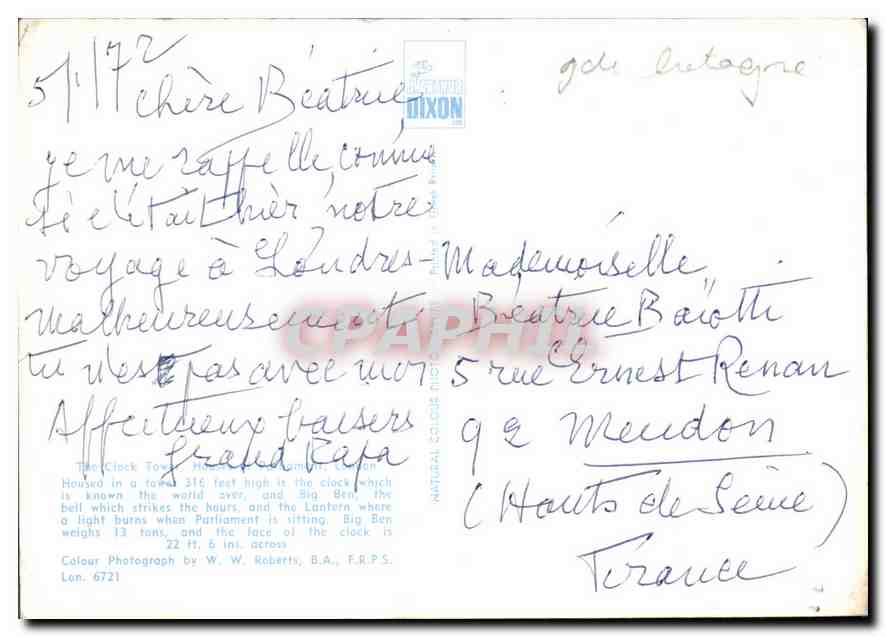 5/1/72
Chère Béatrice
je me rappelle, comme
si c'était hier notre
voyage à Londres -
malheureusement
tu n'es pas avec moi
Affectueux baisers
Grand Papa
The Clock Tower, Houses of Parliament, London
Housed in a tower 316 feet high is the clock which
is known the world over, and Big Ben, the
bell which strikes the hours, and the Lantern where
a light burns when Parliament is sitting. Big Ben
weighs 13 tons, and the face of the clock is
22 ft. 6 ins. across
Colour Photograph by W. W. Roberts, B.A., F.R.P.S.
Lon. 6721
DIXON
NATURAL COLOUR PHOTO
Printed in
CPAPHIL
gde bretagne
Mademoiselle
Béatrice Baïotti
5 rue Ernest Renan
92 Meudon
(Hauts de Seine)
France